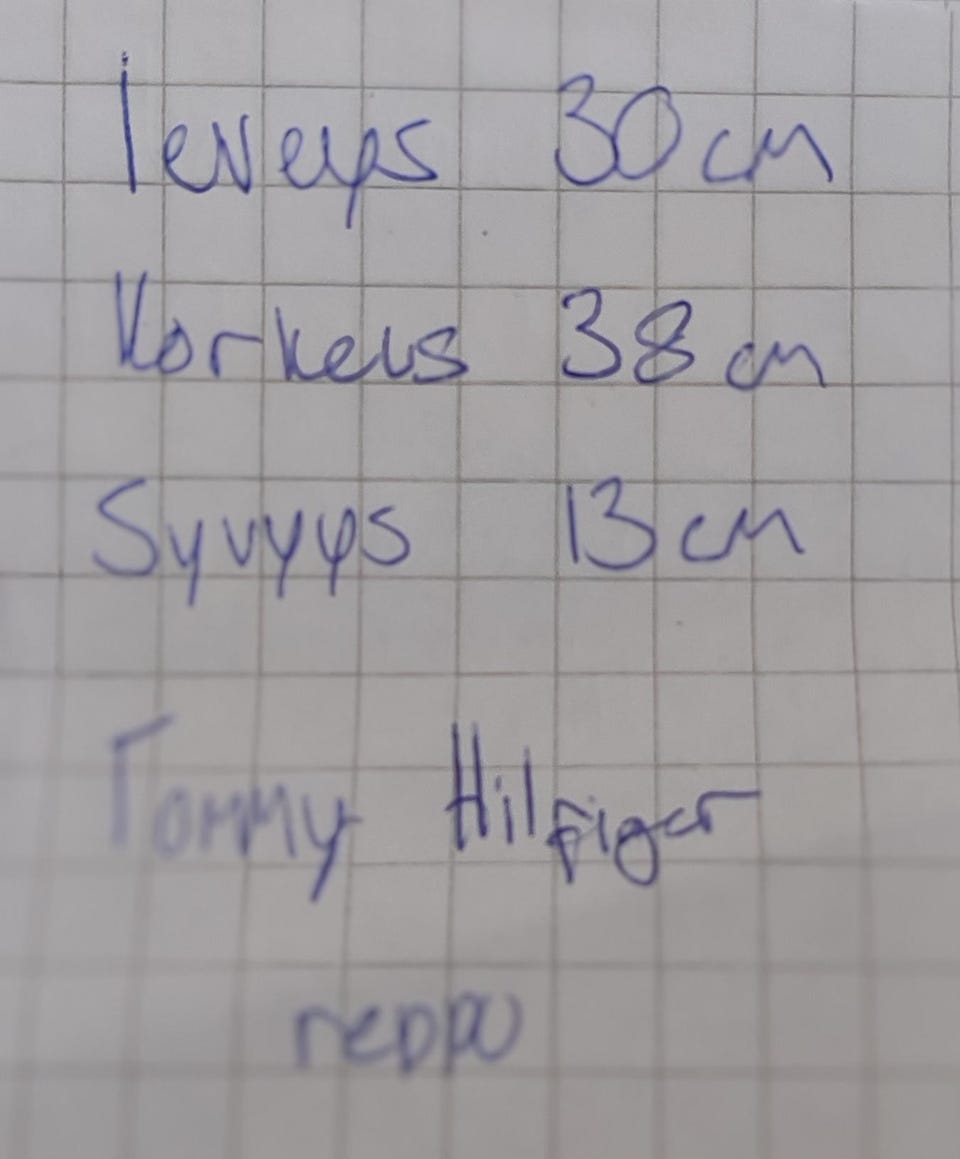 leveys 30 cm
Korkeus 38 cm
Syvyys 13 cm
Tommy Hilfiger
reppu